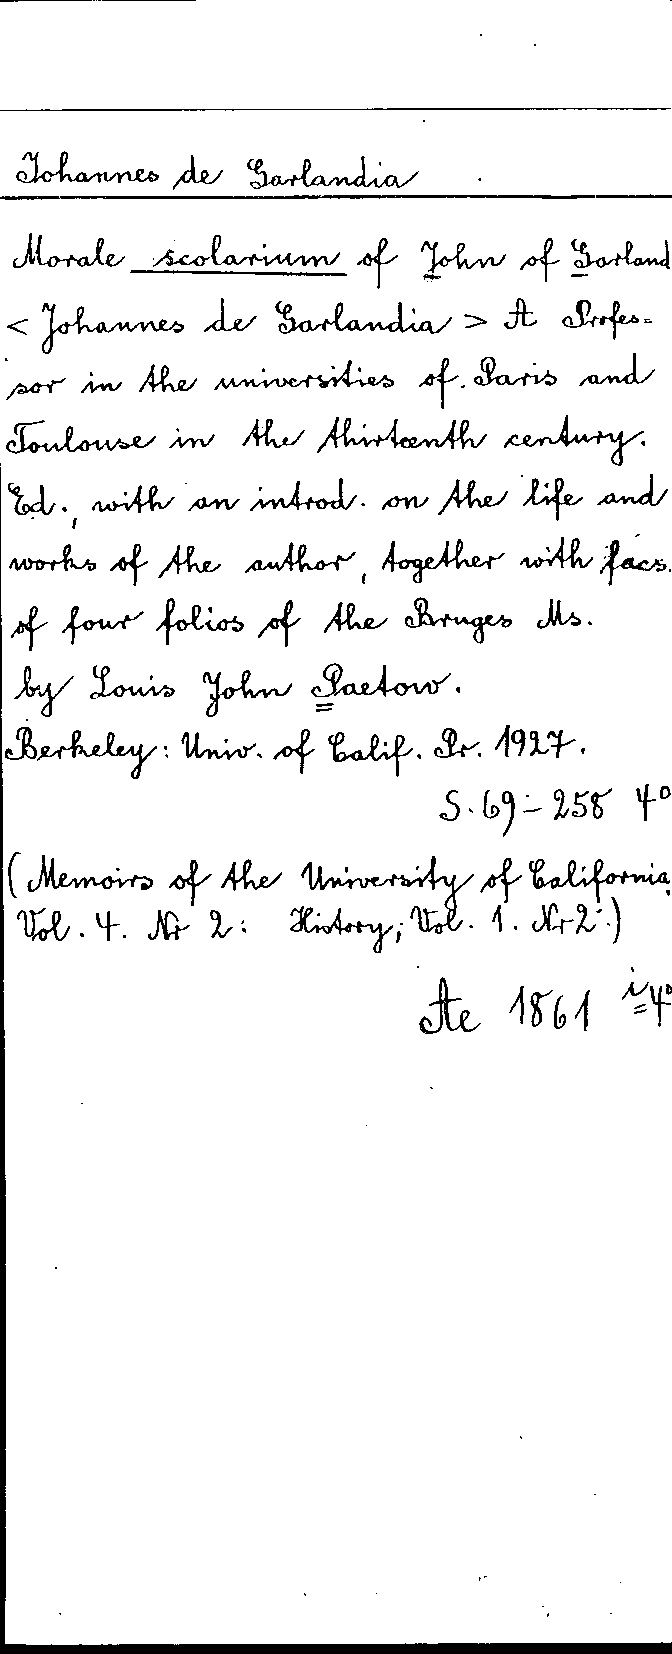 Johannes de Garlandia
Morale scolarium of John of Garland
<Johannes de Garlandia> A Profes-
sor in the universities of Paris and
Toulouse in the thirteenth century.
Ed., with an introd. on the life and
works of the author, together with facs.
of four folios of the Bruges Ms.
by Louis John Paetow.
Berkeley: Univ. of Calif. Pr. 1927.
S. 69-258 4°
(Memoirs of the University of California,
Vol. 4. Nr 2: History; Vol. 1. Nr 2.)
Ae 1861 i 4°